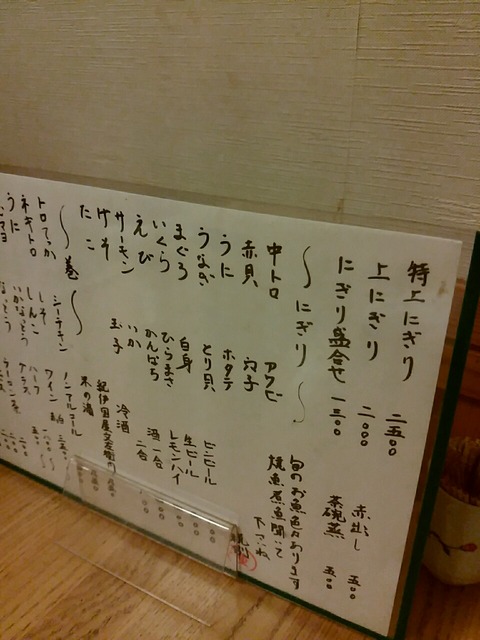 特上にぎり 二五〇〇
上にぎり 二〇〇〇
にぎり盛合せ 一三〇〇
赤出し 五〇〇
茶碗蒸 五〇〇
〜にぎり〜
中トロ
赤貝
うに
うなぎ
まぐろ
いくら
えび
サーモン
げそ
たこ
アワビ
穴子
ホタテ
とり貝
白身
ひらまさ
かんぱち
いか
玉子
旬のお魚色々あります
焼魚煮魚聞いて
下さいね
ビンビール
生ビール
レモンハイ
酒一合
二合
冷酒
紀伊国屋文左衛門
木の酒
ノンアルコール
ワイン
ハーフ
グラス
〜巻〜
トロてっか
ネギトロ
うに
シーチキン
しそ
しんこ
いかなっとう
なっとう